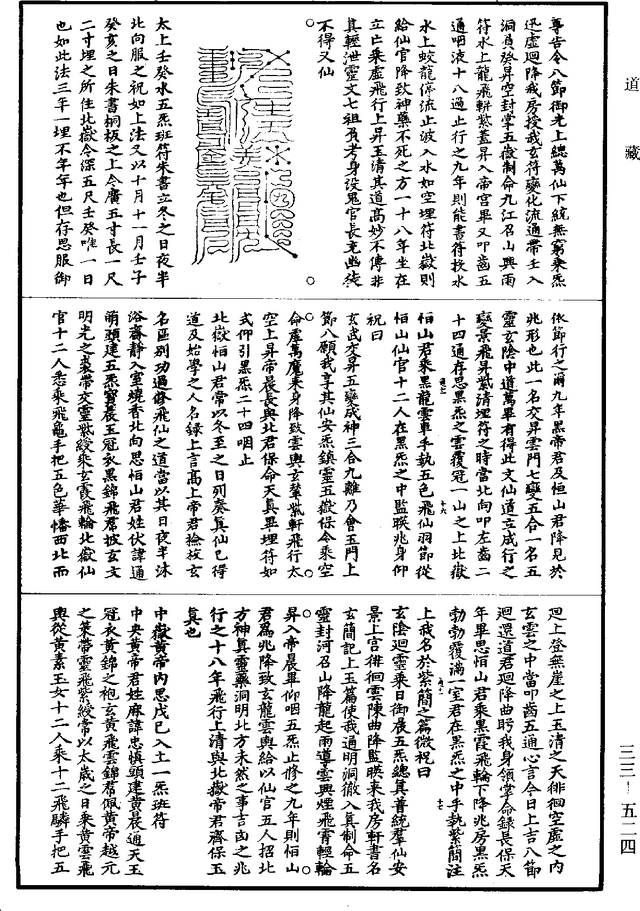 尊告令八節御光上總萬仙下統無窮乘炁
迅虛迴降我房授我玄符變化流通帶壬入
洞負癸昇空封掌五嶽制命九江召山興雨
符水上龍飛輧紫蓋昇入帝宮畢又叩齒五
通咽液十八過止行之九年則能書符投水
水上蛟龍停流止波入水如空埋符北嶽則
給仙官降致神藥不死之方一十八年坐在
立亡乘虛飛行上昇玉清其道高妙不傳非
真輕泄靈文七祖負考身沒鬼官長充幽徒
不得又仙
太上壬癸水五炁班符朱書立冬之日夜半
北向服之祝如上法又以十月十一月壬子
癸亥之日朱書桐板之上令廣五寸長一尺
二寸埋之所住北嶽令深五尺壬癸唯一日
也如此法三年一埋不年年也但存思服御
依節行之爾九年黑帝君及恒山君降見於
兆形也此一名交昇雲門七變五合一名五
靈玄陰中道萬畢有得此文仙道立成行之
變景飛昇紫清埋符之時當北向叩左齒二
十四通存思黑炁之雲覆冠一山之上北嶽
恒山君乘黑龍雲車手執五色飛仙羽節從
恒山仙官十二人在黑炁之中監映兆身仰
祝曰
玄武交昇五變成神三合九離乃會玉門上
節八願我享其仙安炁鎮靈五嶽保令乘空
命虛萬魔束身降致雲輿玄輦紫軒飛行太
空上昇帝晨長與北君保命天真畢埋符如
式仰引黑炁二十四咽止
北嶽恒山君常以冬至之日列奏真仙已得
道及始學之人名錄上言高上帝君撿校玄
名區別功過修飛仙之道當以其日夜半沐
浴齋靜入室燒香北向思恒山君姓伏諱通
萌頭建五炁寶晨玉冠衣黑錦飛帬披玄文
明光之裘帶交靈紫綬乘玄霞飛輪北嶽仙
官十二人悉乘飛龜手把五色華幡西北而
迴上登無崖之上玉清之天徘徊空虛之內
玄雲之中當叩齒五通心言今日上吉八節
迴還道君迴降曲眄我身領掌命錄長保天
年畢思恒山君乘黑霞飛輪下降兆房黑炁
勃勃覆滿一室君在黑炁之中手執紫簡注
上我名於紫簡之篇微祝曰
玄陰迴靈乘日御晨五炁總真普統羣仙安
景上宮徘徊雲陳曲降監映來我房軒書名
玄簡記上玉篇使我通明洞徹入真制命五
靈封河召山降龍起雨導雲興煙飛霄輕輪
昇入帝晨畢仰咽五炁止修之九年則恒山
君為兆降致玄龍雲輿給以仙官五人招北
方神真靈藥洞明北方未然之事吉凶之兆
行之十八年飛行上清與北嶽帝君齊保玉
真也
中嶽黃帝內思戊己入土一炁班符
中央黃帝君姓麻諱忠慎頭建黃晨通天玉
冠衣黃錦之袍玄黃飛雲錦帬佩黃帝越元
之策帶靈飛紫綬常以太歲之日乘黃雲飛
輿從黃素玉女十二人乘十二飛麟手把五
道藏
三三—五二四